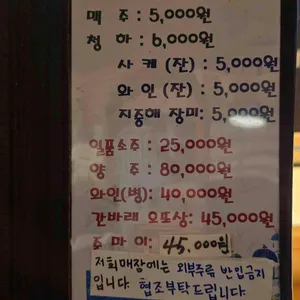 맥 주 : 5,000원
청 하 : 6,000원
사 케 (잔) : 5,000원
와 인 (잔) : 5,000원
지중해 장미: 5,000원
일품소주 : 25,000원
양 주 : 80,000원
와인(병) : 40,000원
간바래 오또상: 45,000원
준 마 이: 45.000원
저희매장에는 외부주류 반입금지
입니다 협조부탁드립니다